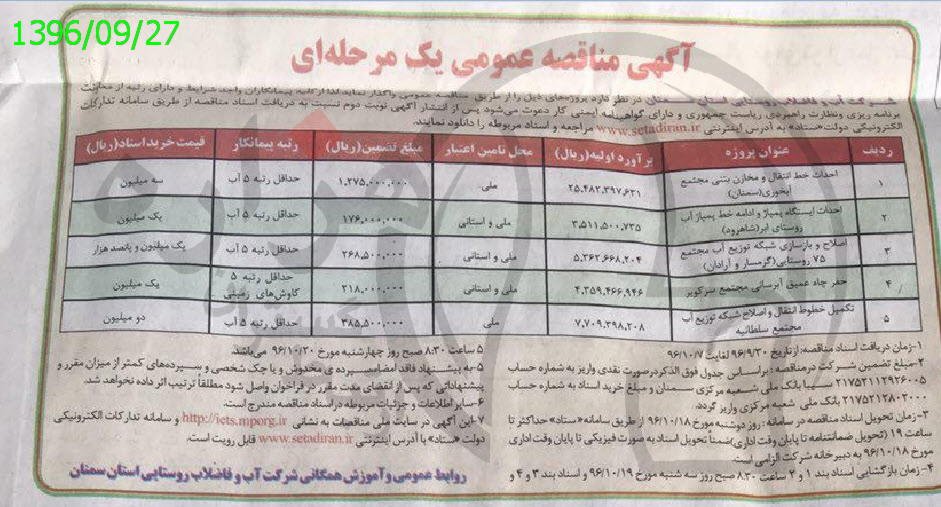 1396/09/27
آگهی مناقصه عمومی یک مرحله‌ای
شرکت آب و فاضلاب روستایی استان سمنان در نظر دارد پروژه‌های ذیل را از طریق مناقصه عمومی واگذار نماید لذا از کلیه پیمانکاران واجد شرایط و دارای رتبه از معاونت
برنامه ریزی ونظارت راهبردی ریاست جمهوری و دارای گواهینامه ایمنی کار دعوت می‌شود پس از انتشار آگهی نوبت دوم نسبت به دریافت اسناد مناقصه از طریق سامانه تدارکات
الکترونیکی دولت«ستاد» به آدرس اینترنتی www.setadiran.ir مراجعه و اسناد مربوطه را دانلود نمایند.
ردیف عنوان پروژه برآورد اولیه(ریال) محل تامین اعتبار مبلغ تضمین(ریال) رتبه پیمانکار قیمت خرید اسناد(ریال)
۱ احداث خط انتقال و مخازن بتنی مجتمع ۲۵،۴۸۳،۳۹۷،۶۳۱ ملی ۱،۲۷۵،۰۰۰،۰۰۰ حداقل رتبه ۵ آب سه میلیون
آبخوری(سمنان)
۲ احداث ایستگاه پمپاژ و ادامه خط پمپاژ آب ۳،۵۱۱،۵۰۰،۷۳۵ ملی و استانی ۱۷۶،۰۰۰،۰۰۰ حداقل رتبه ۵ آب یک میلیون
روستای ابر(شاهرود)
۳ اصلاح و بازسازی شبکه توزیع آب مجتمع ۵،۳۶۳،۶۶۸،۲۰۴ ملی و استانی ۲۶۸،۵۰۰،۰۰۰ حداقل رتبه ۵ آب یک میلیون و پانصد هزار
۷۵ روستایی(گرمسار و آرادان)
۴ حفر چاه عمیق آبرسانی مجتمع سرکویر ۴،۳۵۹،۴۶۶،۹۴۶ ملی و استانی ۲۱۸،۰۰۰،۰۰۰ حداقل رتبه ۵ یک میلیون
کاوش‌های زمینی
۵ تکمیل خطوط انتقال و اصلاح شبکه توزیع آب ۷،۷۰۹،۳۹۸،۲۰۸ ملی ۳۸۵،۵۰۰،۰۰۰ حداقل رتبه ۵ آب دو میلیون
مجتمع سلطانیه
۱-زمان دریافت اسناد مناقصه: از تاریخ ۹۶/۹/۳۰ لغایت ۹۶/۱۰/۷
۲-مبلغ تضمین شرکت در مناقصه: براساس جدول فوق الذکر در صورت نقدی واریز به شماره حساب
۲۱۷۵۲۱۱۲۹۲۶۰۰۵ سیبا بانک ملی شعبه مرکزی سمنان و مبلغ خرید اسناد به شماره حساب
۲۱۷۵۲۱۲۸۰۳۰۰۰ بانک ملی شعبه مرکزی واریز گردد.
۳-زمان تحویل اسناد مناقصه در سامانه: روز دوشنبه مورخ ۹۶/۱۰/۱۸ از طریق سامانه«ستاد» حداکثر تا
ساعت ۱۹ (تحویل ضمانتنامه تا پایان وقت اداری)ضمناً تحویل اسناد به صورت فیزیکی تا پایان وقت اداری
مورخ ۹۶/۱۰/۱۸ به دبیرخانه شرکت الزامی است.
۴-زمان بازگشایی اسناد بند ۱ و ۲ ساعت ۸:۳۰ صبح روز سه شنبه مورخ ۹۶/۱۰/۱۹ و اسناد بند ۳ و ۴ و
۵ ساعت ۸:۳۰ صبح روز چهارشنبه مورخ ۹۶/۱۰/۲۰ می‌باشد.
۵-به پیشنهاد فاقد امضا، سپرده‌ی مخدوش و یا چک شخصی و سپرده‌های کمتر از میزان مقرر و
پیشنهاداتی که پس از انقضای مدت مقرر در فراخوان واصل شود مطلقاً ترتیب اثر داده نخواهد شد.
۶-سایر اطلاعات و جزئیات مربوطه در اسناد مناقصه مندرج است.
۷-این آگهی در سایت ملی مناقصات به نشانی http://iets.mporg.ir و سامانه تدارکات الکترونیکی
دولت «ستاد» با آدرس اینترنتی www.setadiran.ir قابل رویت است.
روابط عمومی و آموزش همگانی شرکت آب و فاضلاب روستایی استان سمنان